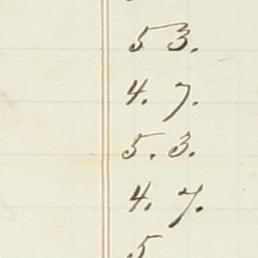 5 3.
4. 7.
5. 3.
4. 7.
5